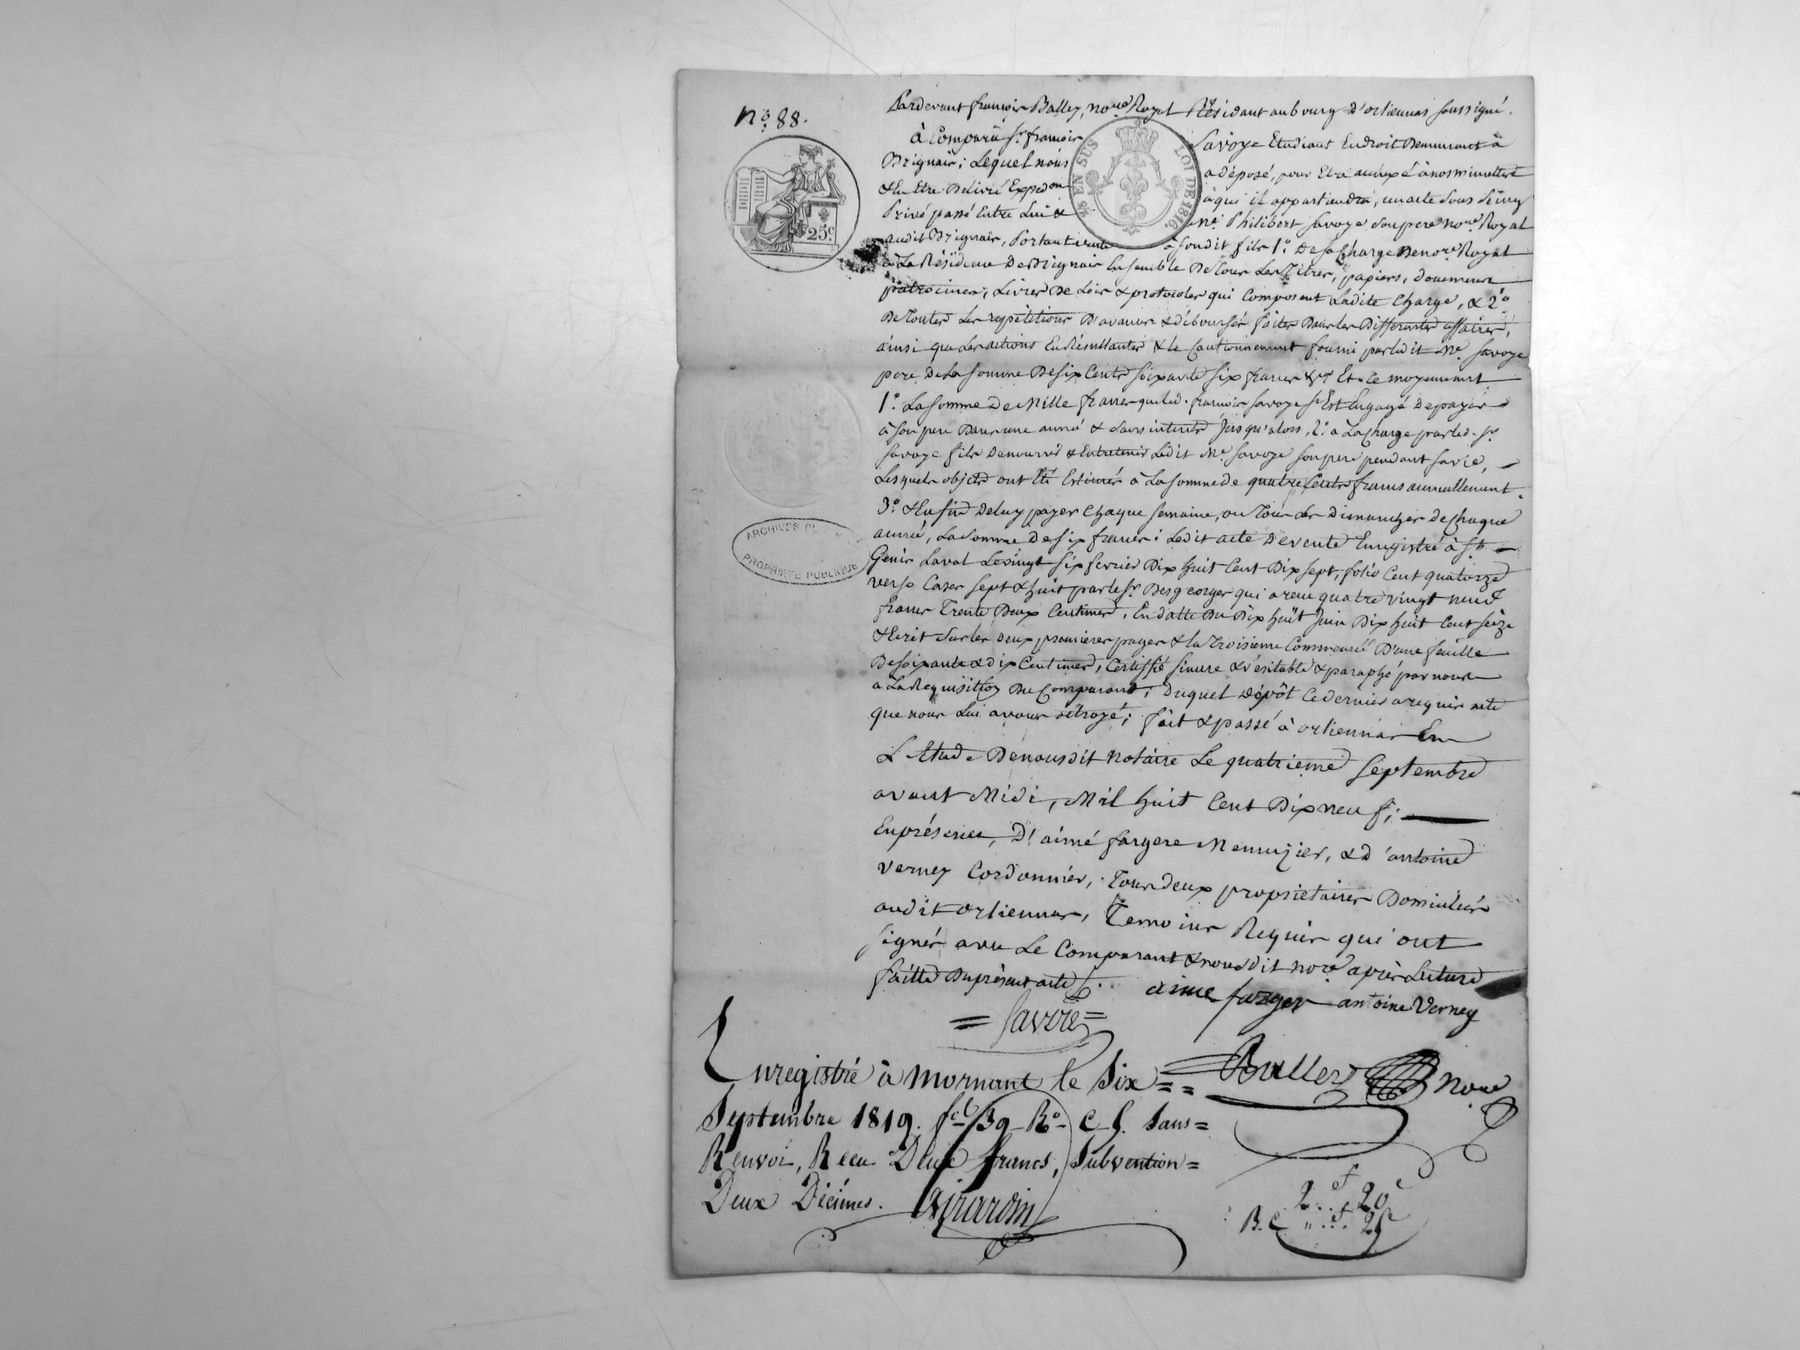 N.º 88.
Pardevant françois Balley, no.re Royal Résidant au bourg d'orliennas soussigné.
à Comparu S.r françois Savoye Etudiant En droit Demeurant à
Brignais; Lequel nous a déposé, pour Etre annexé à nos minuttes
& En Etre Délivré Expedon à qui il appartiendra, un acte sous seing
Privé passé Entre Lui & M.e Philibert Savoye son pere no.re Royal
audit Brignais, Portant vente à sondit fils 1.º De sa Charge De no.re Royal
à La Résidence De Brignais Ensemble De Tous Les Titres, papiers, documens
Livres De Loix & protocoles qui Composent Ladite Charge, & 2.º
De Toutes Les repétitions D'avances & débourses faites Dans les Differentes affaires,
ainsi que Les actions En Résultantes & Le Cautionnement fourni par ledit M.e Savoye
pere De La somme De six Cents soixante six francs Et Ce moyennant
1.º La somme De Mille francs que led. françois Savoye s'Est Engagé De payer
à son pere Dans une année & sans interets jusqu'alors, 2.º à La charge par led. S.r
Savoye fils De nourrir & Entretenir Ledit M.e Savoye son pere pendant sa vie,
Lesquels objets ont Eté Estimés à La somme De quatre Cents francs annuellement.
3.º & Enfin De luy payer Chaque semaine, ou Tous Les Dimanches De Chaque
année, La somme De six francs; Ledit acte De vente Enregistré à S.t
Genis Laval Le vingt six fevrier Dix huit Cent Dix sept, folio Cent quatorze
verso Cases sept & huit par le S.r Desgeorges qui a recu quatre vingt neuf
francs Trente Deux Centimes, En datte Du Dix huit Juin Dix huit Cent seize
& Ecrit sur les deux premieres pages & la Troisieme Commencée D'une feuille
De soixante & dix Centimes, Certiffié sincere & véritable & paraphé par nous
à La Requisition Du Comparant; Duquel dépôt Ce dernier a requis acte
que nous Lui avons octroyé; fait & passé à orliennas En
L'Etude De nousdit notaire Le quatrieme Septembre
avant Midi, Mil huit Cent Dix neuf;
En présence, D'aimé fargere Menuzier, & d'antoine
Verney Cordonnier, Tous deux propriétaires Domiciliés
audit orliennas, Temoins Requis qui ont
signés avec Le Comparant & nousdit no.re après Lecture
faitte Du présent acte.
aime farger antoine Verney
Savoie
Balley no.re
Enregistré à Mornant le Six
Septembre 1819. f.º 139 R.º C. 5. Sans
Renvoi, Recu Deux francs, Subvention
Deux Décimes. Girardin
2.f 20.c
B.C " f 25
25c
EN SUS
LOI DE 1816
ARCHIVES
PROPRIÉTÉ PUBLIQUE